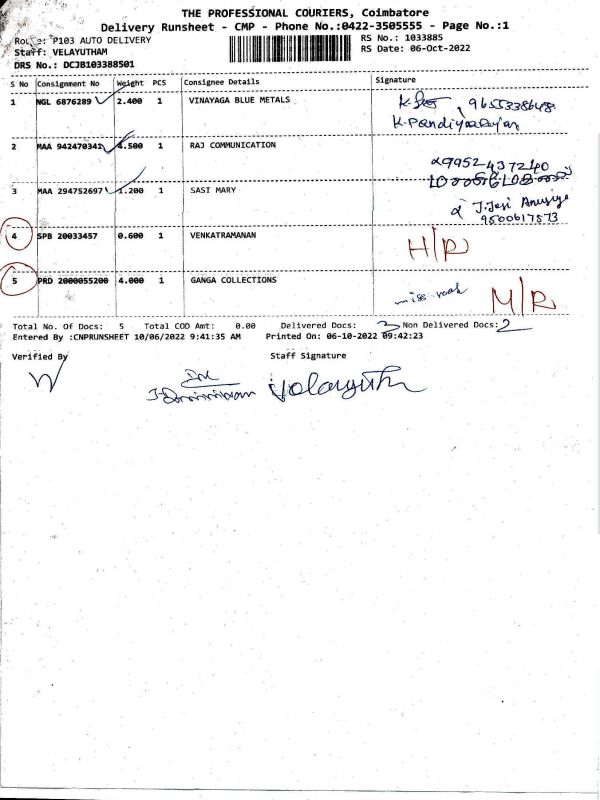 THE PROFESSIONAL COURIERS, Coimbatore
Delivery Runsheet - CMP - Phone No.:0422-3505555 - Page No.:1
Route: P103 AUTO DELIVERY
RS No.: 1033885
Staff: VELAYUTHAM
RS Date: 06-Oct-2022
DRS No.: DCJB103388501
S No Consignment No Weight PCS Consignee Details Signature
1 NGL 6876289 2.400 1 VINAYAGA BLUE METALS 9655338648
K.Pandiyarajan
2 MAA 942470341 4.500 1 RAJ COMMUNICATION
9952437240
3 MAA 294752697 1.200 1 SASI MARY
J.Jesi Anusiya
9500617573
4 SPB 20033457 0.600 1 VENKATRAMANAN H/R
5 PRD 2000055200 4.000 1 GANGA COLLECTIONS miss M/R
Total No. Of Docs: 5 Total COD Amt: 0.00 Delivered Docs: 3 Non Delivered Docs: 2
Entered By :CNPRUNSHEET 10/06/2022 9:41:35 AM Printed On: 06-10-2022 09:42:23
Verified By Staff Signature